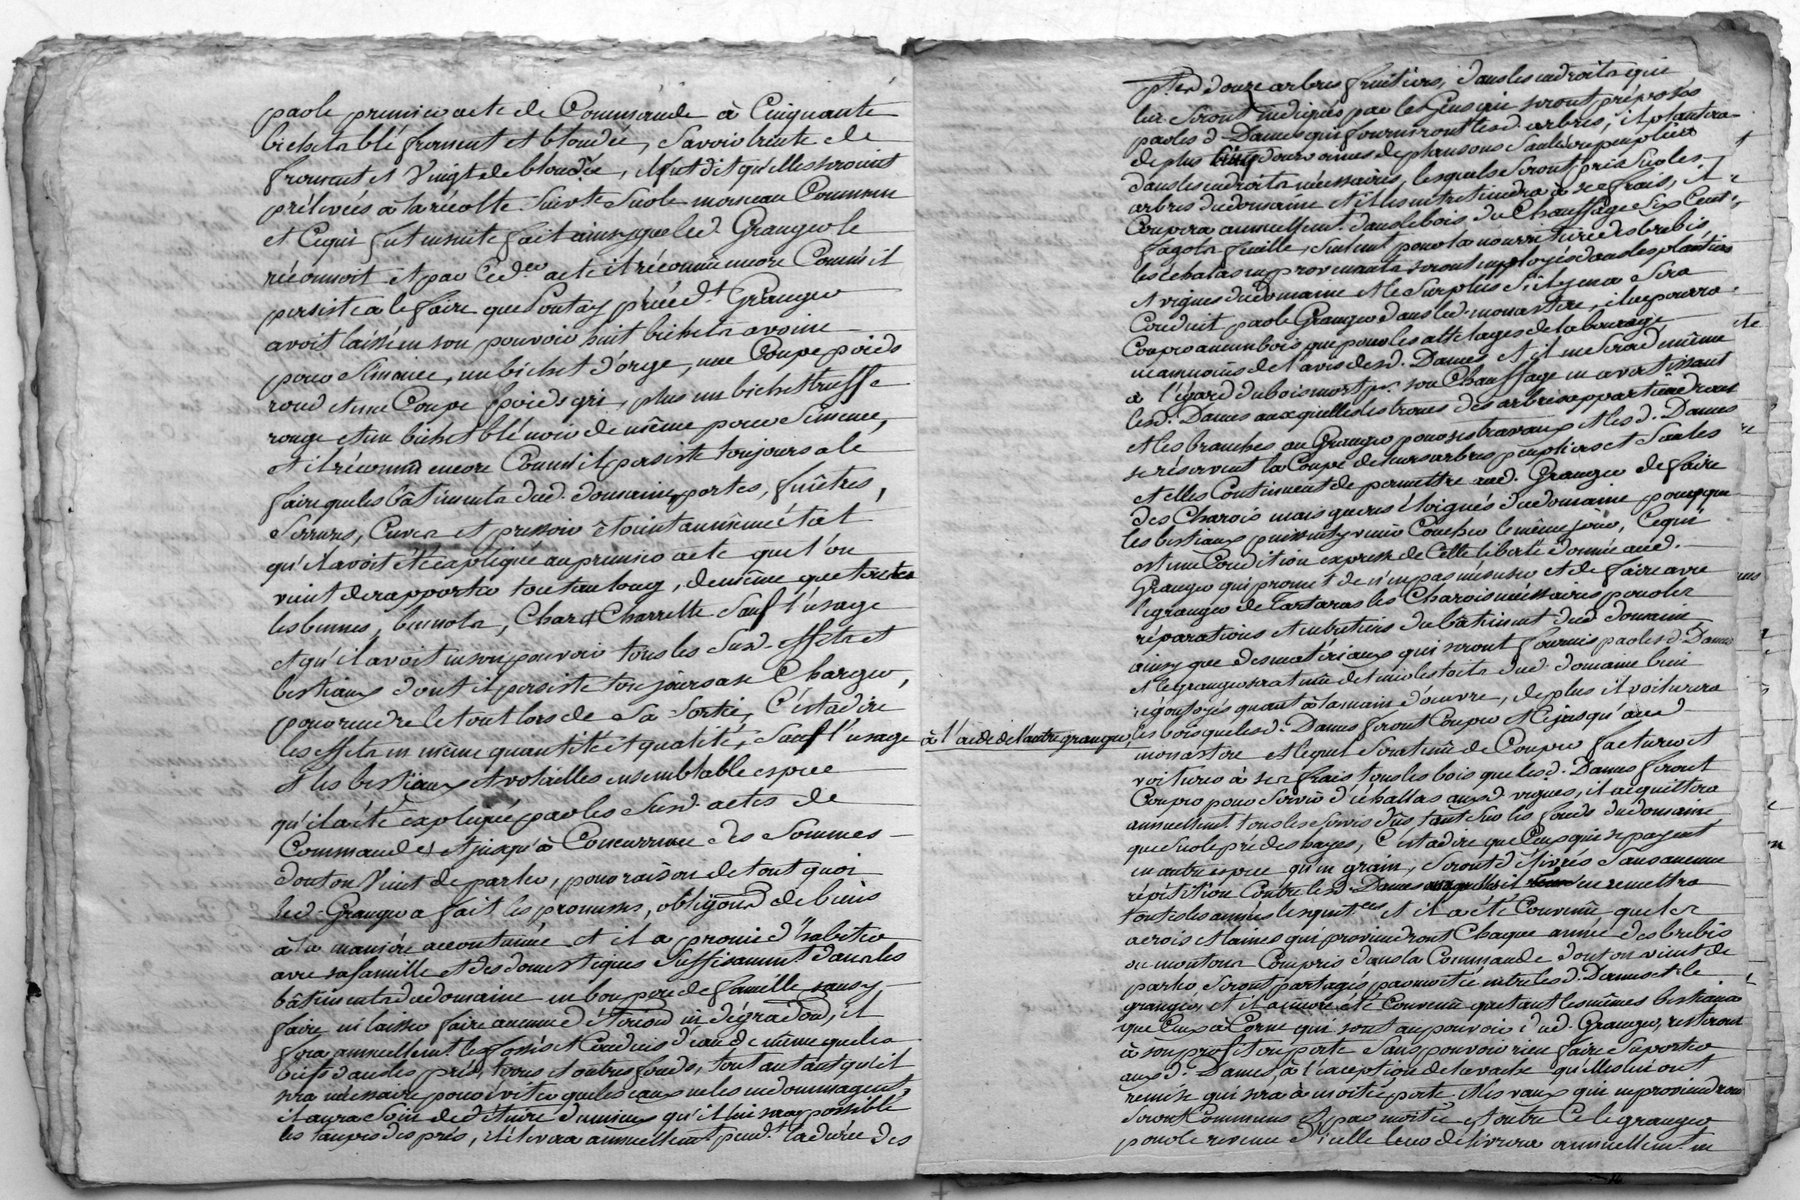 par le premier acte de Commande à Cinquante
bichets blé froment et blondée, Savoir trente de
froment et Vingt de blondée, il fut dit qu'elles seroient
prélevées à la récolte Suivte Sur le morceau Commun
et Ce qui fut ensuite fait ainsy que led. Granger le
réconnoit et par Ced. er acte il réconnu encore Comm'il
persiste a le faire que Pontoy précéd.t Granger
avoit laissé en son pouvoir huit bichets avoine
pour Sémance, un bichet d'orge, une Coupe poids
rond et une Coupe poids gri, plus un bichet truffe
rouge et un bichet blé noir de même pour Sémence,
et il réconnu encore Comm'il persiste toujours a le
faire que les bâtiments dud. domaine, portes, fenêtres,
Serrures, Cuves et pressoir étoient au même état
qu'il avoit été expliqué au premier acte que l'on
vient de rapporter tout au long, de même que toutes
les bennes, bennots, Char & Charrette Sauf l'usage
et qu'il avoit en son pouvoir tous les Susd. effets et
bestiaux dont il persiste toujours a se Charger,
pour rendre le tout lors de Sa Sortie, C'est à dire
les effets en même quantité et qualité, Sauf l'usage
et les bestiaux et volailles en semblable espece
qu'il a été expliqué par les Susd. actes de
Commande et jusqu'à Concurrence des Sommes
dont on Vient de parler, pour raison de tout quoi
led. Granger a fait les promesses, obligaons de biens
à la maniére accoutumée et il a promis d'habiter
avec sa famille et des domestiques Suffisamment dans les
bâtiments du domaine en bon pere de famille sans y
faire ni laisser faire aucune détérioaon ni dégradaon, il
fera annuellemt. les fossés et Conduis d'eau de même que les
biefs dans les prés, terres et autres fonds, tout autant qu'il
sera nécessaire pour éviter que les eaux ne les endommagent,
il aura Soin de détruire du mieux qu'il lui sera possible
les taupes des prés, il élevera annuellement pend.t la durée des
d. douze arbres fruitiers, dans les endroits qui
lui Seront indiqués par les Gens qui seront préposés
par les d. Dames qui fourniront lesd. arbres; il plantera
de plus douze annes de plansons Saules ou peupliers
dans les endroits nécessaires, lesquels Seront pris Sur les
arbres du domaine et il les entretiendra à ses frais, il
Coupera annuellement dans le bois du Chauffage Six Cent
fagots feuille, Suivant pour la nourriture des brebis
les échalas en provenants seront employés dans les plantiers
et vignes du Domaine et le Surplus S'il y en a Sera
Conduit par le Granger dans led. monastere, il ne pourra
Couper aucun bois que pour les attelages de labourage
néanmoins de l'avis desd. Dames, et il en Sera de même
à l'égard du bois mort pr. son Chauffage en avertissant
lesd. Dames auxquelles les troncs des arbres appartiendront
et les branches au Granger pour ses travaux et lesd. Dames
se réservent la Coupe de leurs arbres peupliers et Saules
et elles Continuent de permettre aud. Granger de faire
des Charois mais guères éloignés du domaine pour que
les bestiaux puissent y venir Coucher le même jour, Ce qui
est une Condition expresse de Celle liberté donnée aud.
Granger qui promet de n'en pas mésuser et de faire avec
le granger de Tartaras les Charois nécessaires pour les
réparations et entretiens du bâtiment dud. domaine
ainsy que des matériaux qui seront fournis par lesd. Dames
et le granger sera tenu de tenir les toits dud. domaine bien
regoutoyés quant à la main d'œuvre, de plus il voiturera
à l'aide de l'autre granger, les bois que lesd. Dames feront Couper et Ce jusqu'aud.
monastere et lequel Sera tenu de Couper facturer et
voiturer à ses frais tous les bois que lesd. Dames feront
Couper pour Servir d'échallas auxd. vignes, il acquittera
annuellemt. tous les Servis dûs tant Sur les fonds du domaine
que Sur le pré des hayes, C'est à dire que Ceux qui se payent
en autre espece qu'en grain, Seront délivrés Sans aucune
répétition Contre lesd. Dames auxquelles il en remettra
toutes les années les quitces et il a été Convenu que les
acrois et laines qui proviendront Chaque année des brebis
ou moutons Compris dans la Commande dont on vient de
parler, Seront partagés par moitié entre lesd. Dames et le
granger, et il a encore été Convenu que tant lesmêmes bestiaux
que Ceux à Corne qui sont au pouvoir dud. Granger, resteront
à son profit ou perte Sans pouvoir rien faire Suporter
auxd. Dames, à l'exception de la vache qu'elles lui ont
remise qui sera à moitié perte et les vaux qui en proviendront
Seront Communs et par moitié et outre Ce le granger
pour le revenu d'icelle leur délivrera annuellement en